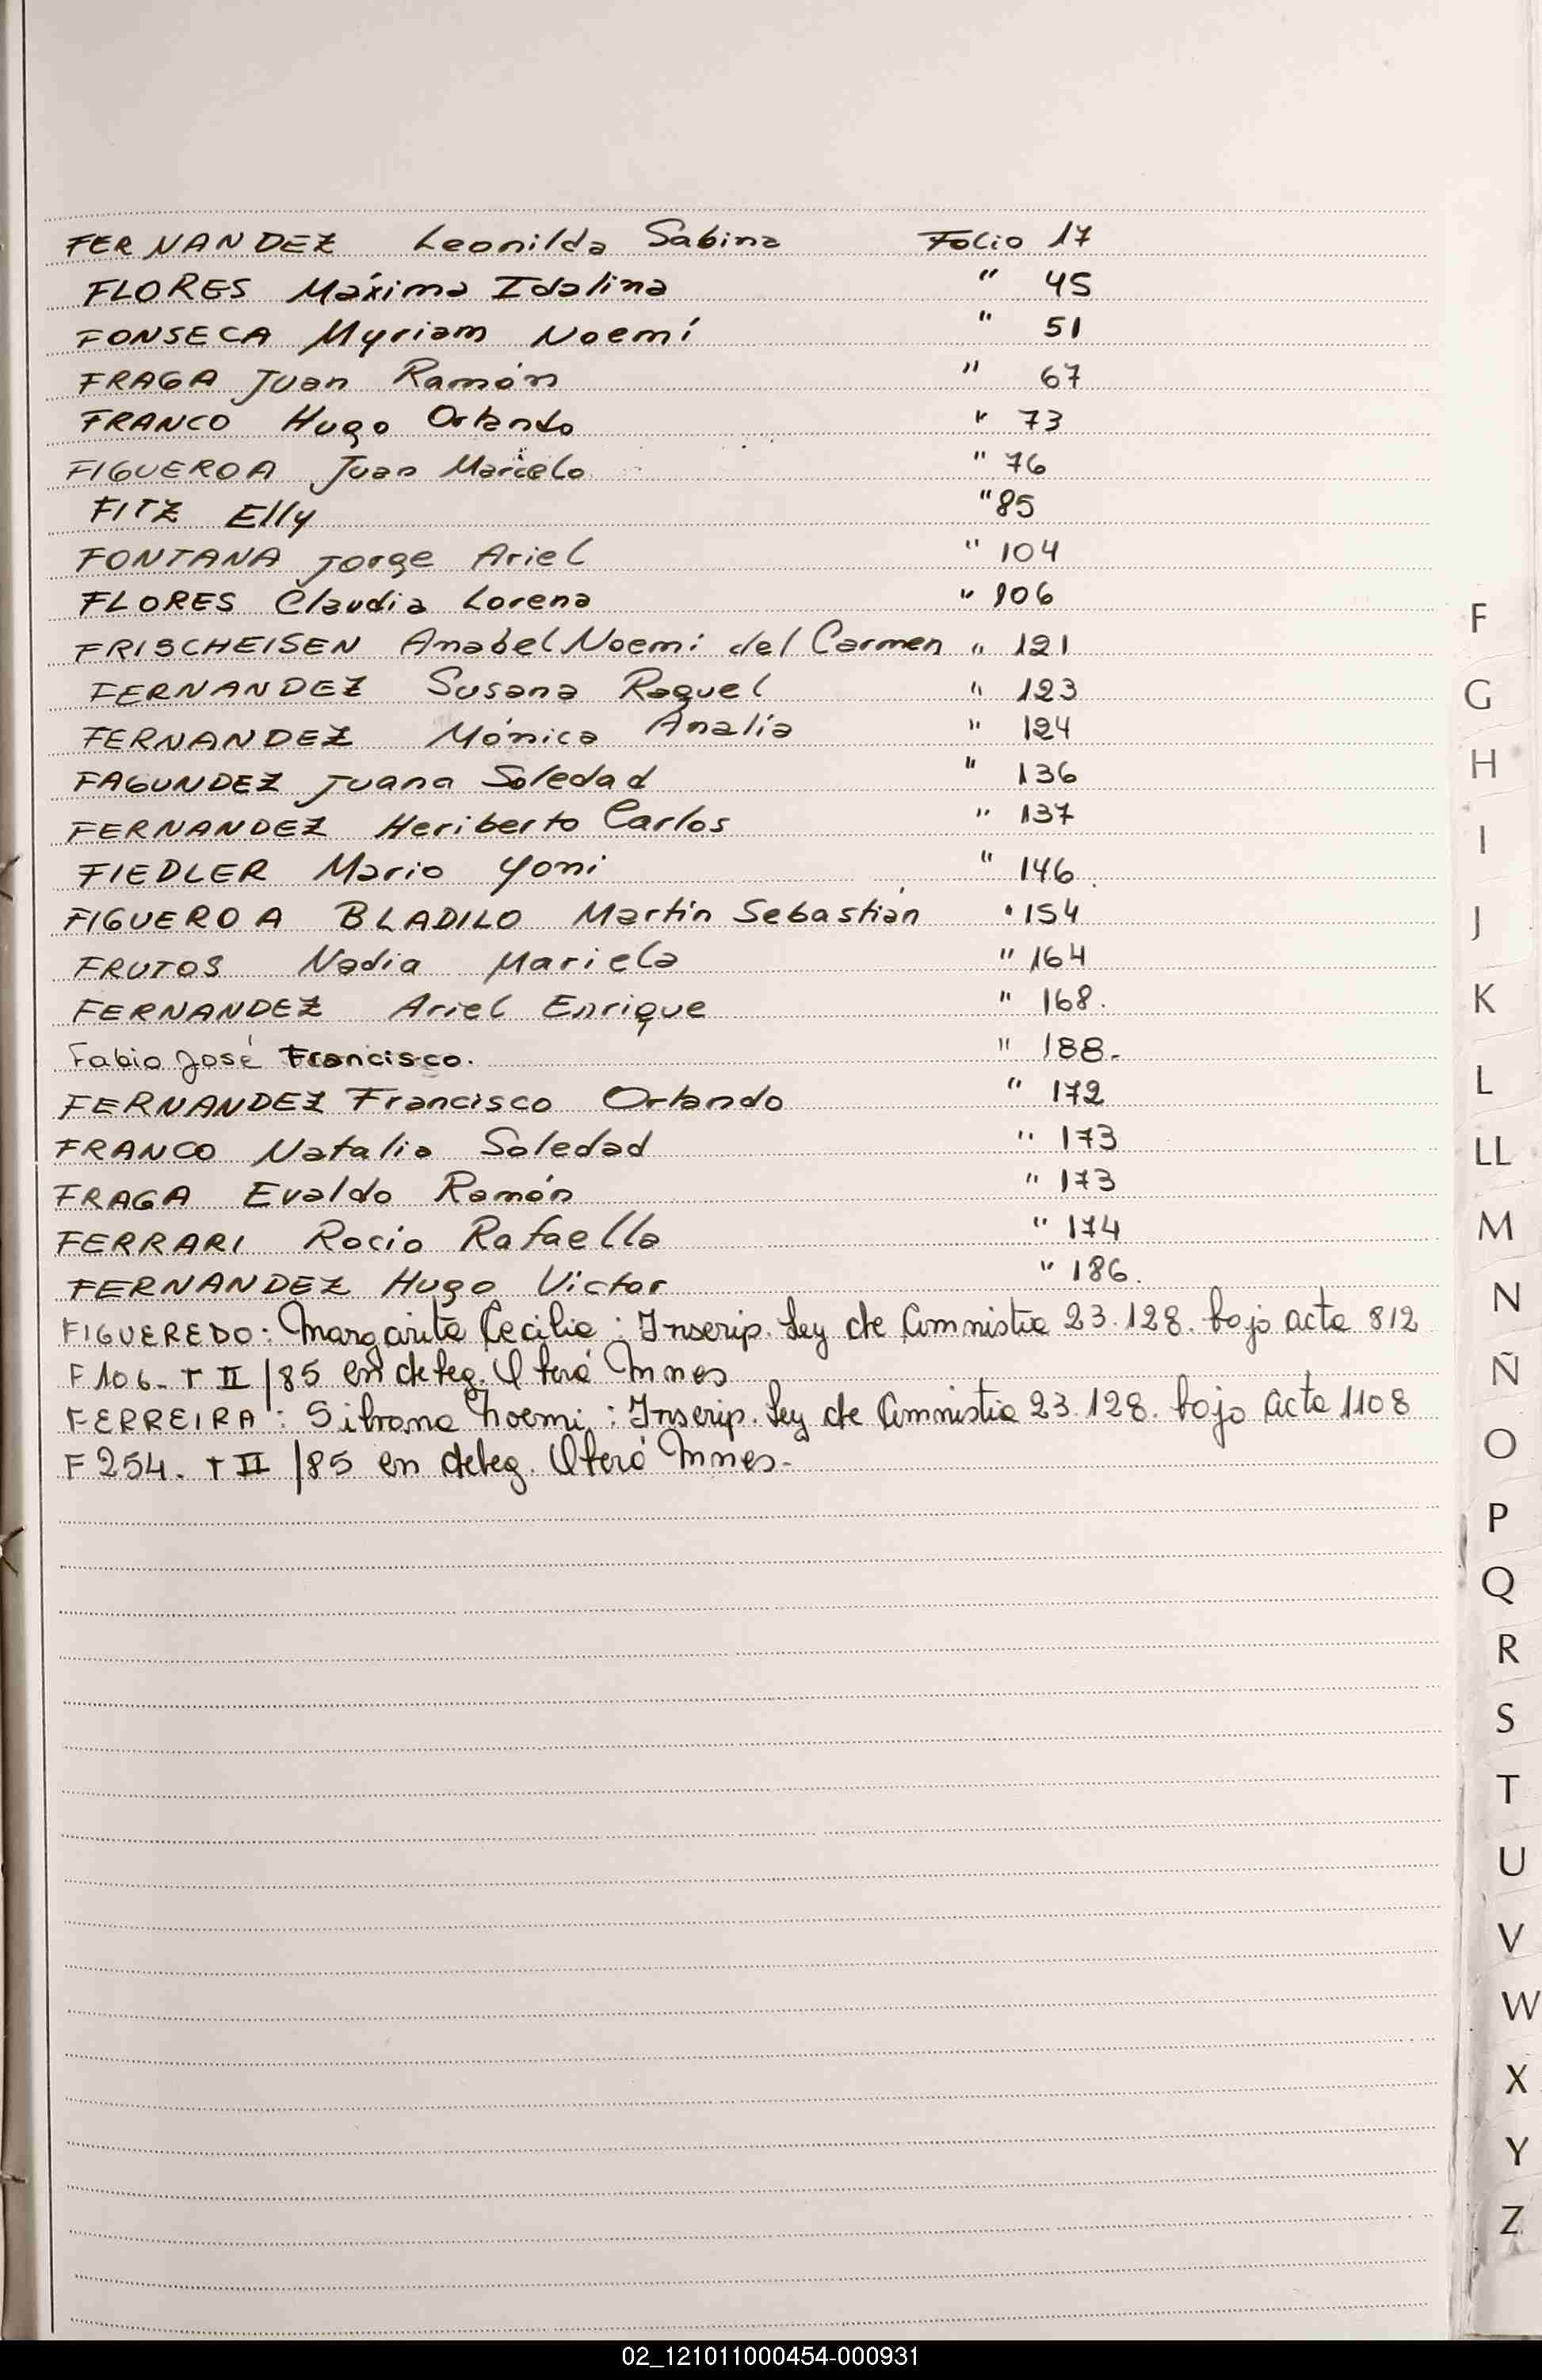 FERNANDEZ Leonilda Sabina Folio 17
FLORES Máxima Idalina " 45
FONSECA Myriam Noemí " 51
FRAGA Juan Ramón " 67
FRANCO Hugo Orlando " 73
FIGUEROA Juan Marcelo " 76
FITZ Elly " 85
FONTANA Jorge Ariel " 104
FLORES Claudia Lorena " 106
FRISCHEISEN Anabel Noemi del Carmen " 121
FERNANDEZ Susana Raquel " 123
FERNANDEZ Mónica Analía " 124
FAGUNDEZ Juana Soledad " 136
FERNANDEZ Heriberto Carlos " 137
FIEDLER Mario Yoni " 146.
FIGUEROA BLADILO Martín Sebastián " 154
FRUTOS Nadia Mariela " 164
FERNANDEZ Ariel Enrique " 168.
Fabio José Francisco. " 188.-
FERNANDEZ Francisco Orlando " 172
FRANCO Natalia Soledad " 173
FRAGA Evaldo Ramón " 173
FERRARI Rocio Rafaella " 174
FERNANDEZ Hugo Victor " 186.
FIGUEREDO: Margarita Cecilia: Inscrip. Ley de Amnistia 23.128. bajo acta 812
F 106- T II /85 en deleg. Mnes
FERREIRA: Silvana Noemi: Inscrip. Ley de Amnistia 23.128. bajo acta 1108
F 254. T II /85 en deleg. Mnes-
F
G
H
I
J
K
L
LL
M
N
Ñ
O
P
Q
R
S
T
U
V
W
X
Y
Z
02_121011000454-000931